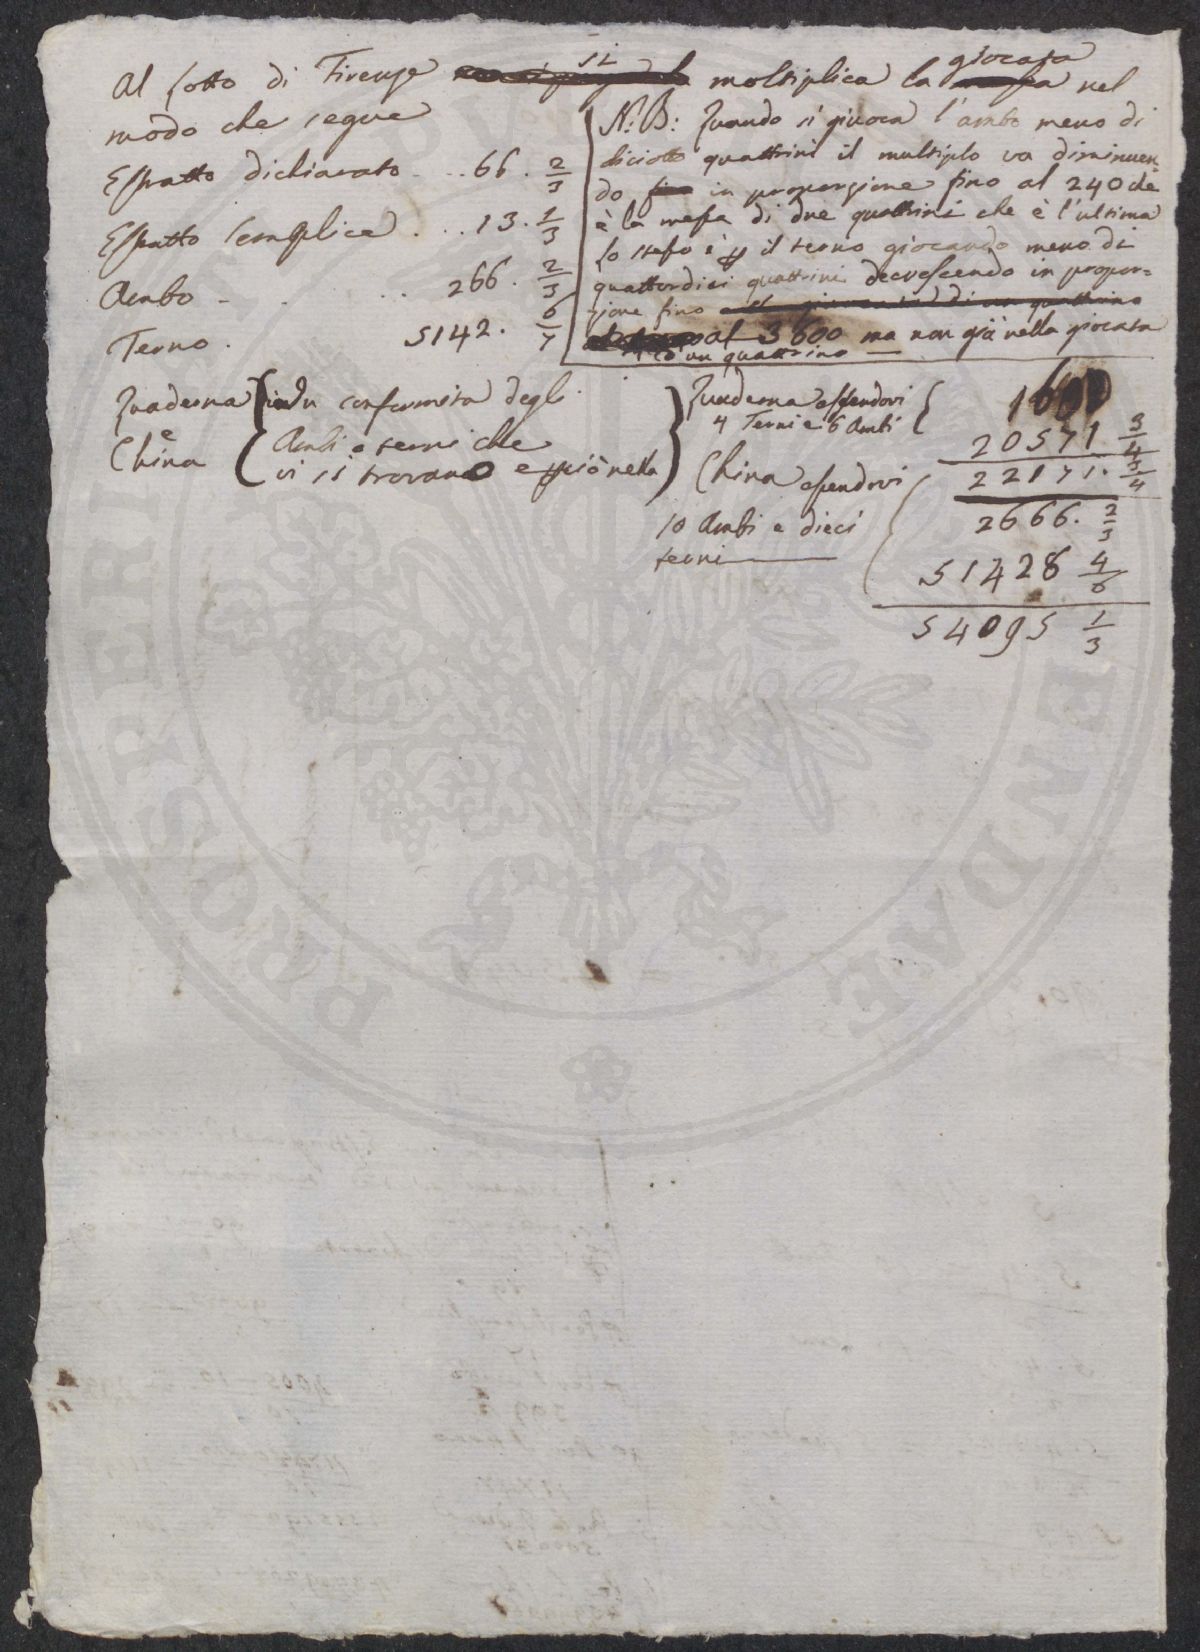 si giocata
Al Lotto di Firenze moltiplica la nel
modo che segue
Estratto dichiarato . . . 66 . 2/3
Estratto semplice . . . 13 . 1/3
Ambo . . . 266 . 2/3
Terno . 5142 . 6/7
N: B: Quando si giuoca l'ambo meno di
diciotto quattrini il multiplo va diminuen-
do fino in proporzione fino al 240 che
è la messa di due quattrini che è l'ultima
Lo stesso è p il terno giocando meno di
quattordici quattrini decrescendo in propor=
zione fino
al 3600 ma non già nella giocata
d un quattrino
Quaderna
e
China
In conformità degli
Ambi e terni che
vi si trovano e ciò nella
Quaderna essendovi
4 Terni e 6 Ambi
1600
20571 3/4
22171. 3/4
China essendovi
10 Ambi e dieci
terni
2666. 2/3
51428 4/6
54095 1/3
PROSPERI
ENDAE